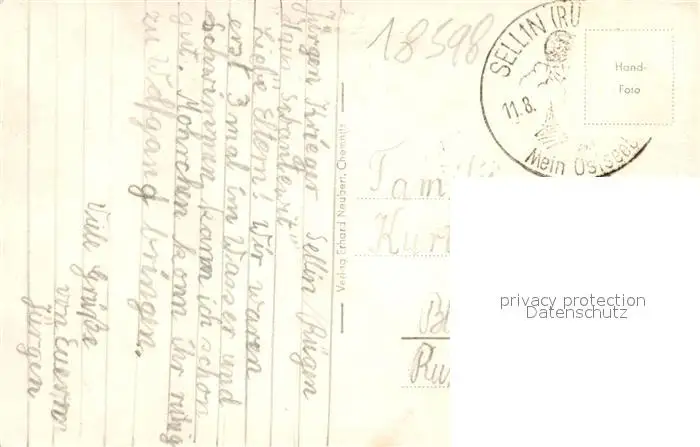 Jürgen Krieger Sellin/Rügen
Haus
Liebe Eltern! Wir waren
erst 3 mal im Wasser und
schwimmen kann ich schon
gut. Möhrchen könn ihr ruhig
zu Wolfgang bringen.
Viele Grüße
von Euerm
Jürgen
Verlag Erhard Neubert, Chemnitz
18598
SELLIN (RÜ
11.8.
Mein Ostseeb
Hand-
Foto
Famili
Kurt
privacy protection
Datenschutz